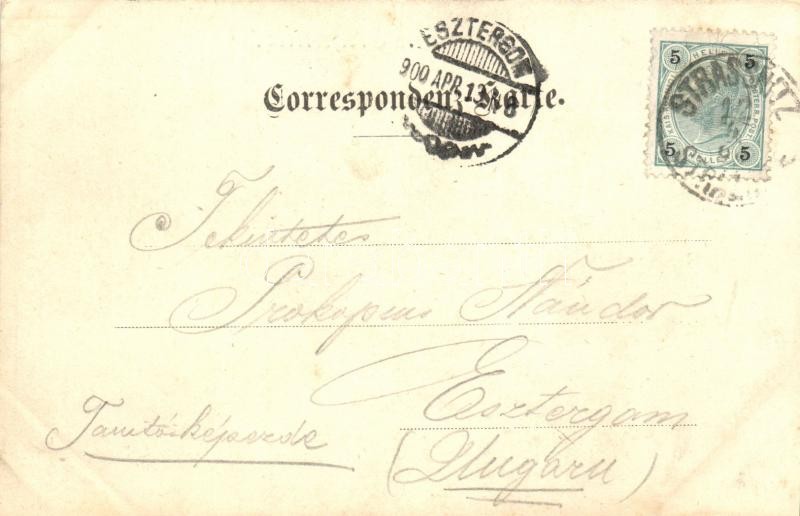 ESZTERGOM
900 APR. 13
Correspondenz-Karte.
5 HELLER 5
5 HELLER 5
STRASSNITZ
Tekintetes
Prokopius Nándor
Esztergom
Tanitóképezde
(Ungarn)